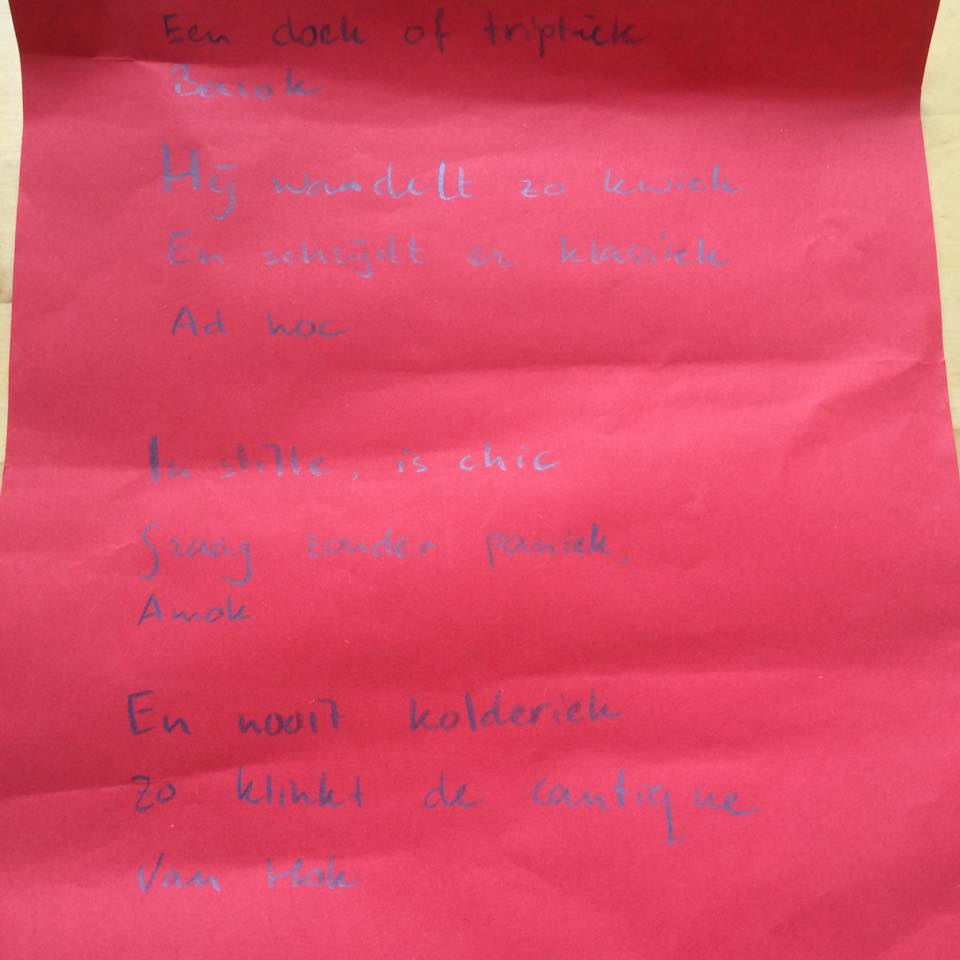 Een doek of triptiek
Barok
Hij wandelt zo kwiek
En schrijdt er klassiek
Ad hoc
In stilte, is chic
Graag zonder paniek,
Amok
En nooit kolderiek
Zo klinkt de cantique
Van Hok